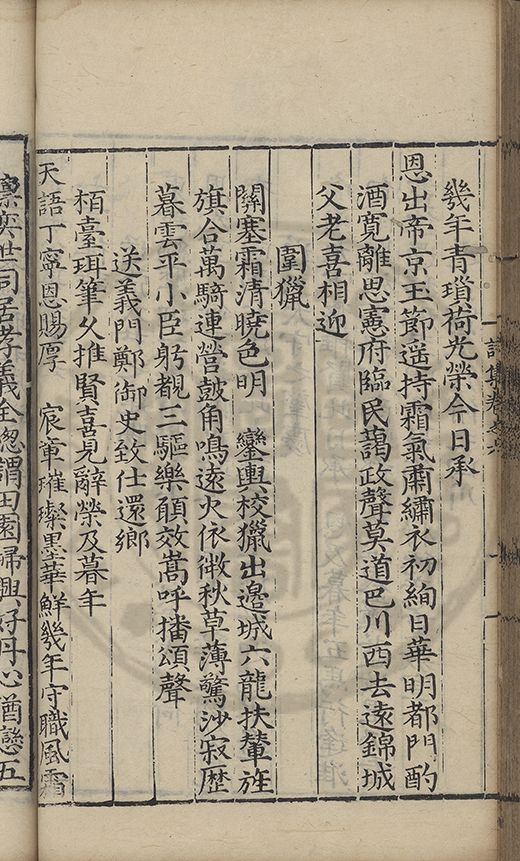 詩集卷之六
幾年青瑣荷光榮今日承
恩出帝京玉節遥持霜氣肅繡衣初絢日華明都門酌
酒寬離思憲府臨民藹政聲莫道巴川西去遠錦城
父老喜相迎
圍獵
關塞霜清曉色明　鑾輿校獵出邊城六龍扶輦旌
旗合萬騎連營鼓角鳴遠火依微秋草薄驚沙寂歷
暮雲平小臣躬覩三驅樂願效嵩呼播頌聲
送義門鄭御史致仕還鄉
栢臺珥筆久推賢喜見辭榮及暮年
天語丁寧恩賜厚　宸章璀璨墨華鮮幾年守職風霜
凛奕世同居孝義全總謂田園歸興好丹心猶戀五